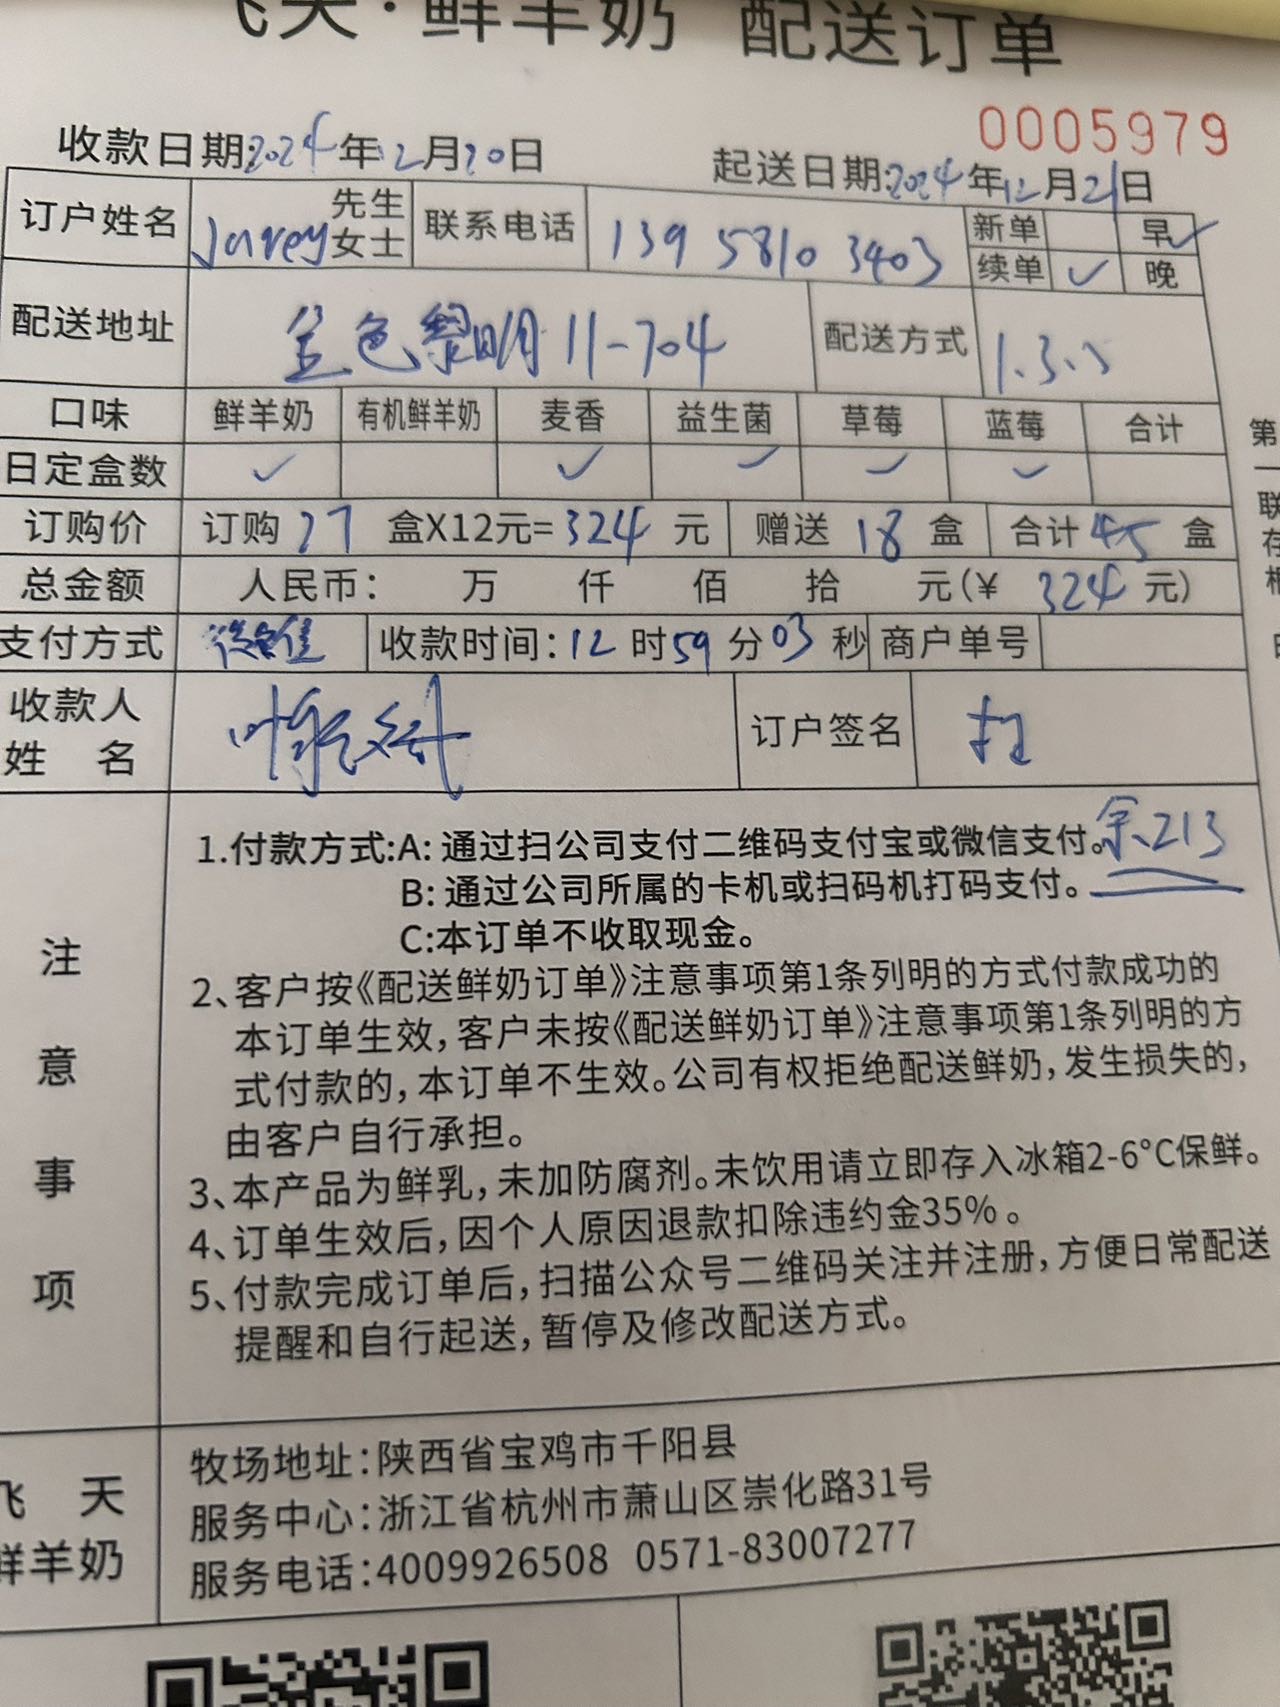 飞天·鲜羊奶 配送订单
0005979
收款日期:2024年12月20日 起送日期:2024年12月21日
订户姓名 Jarey 先生 女士 联系电话 139 5810 3403 新单 早✓
续单 ✓ 晚
配送地址 金色黎明11-704 配送方式 1.3.5
口味 鲜羊奶 有机鲜羊奶 麦香 益生菌 草莓 蓝莓 合计
日定盒数 ✓ ✓ ✓ ✓ ✓
订购价 订购 27 盒X12元=324 元 赠送 18 盒 合计 45 盒
总金额 人民币: 万 仟 佰 拾 元(¥ 324 元)
支付方式 收款时间:12 时 59 分 03 秒 商户单号
收款人
姓 名 订户签名
余213
注意事项
1.付款方式:A: 通过扫公司支付二维码支付宝或微信支付。
B: 通过公司所属的卡机或扫码机打码支付。
C:本订单不收取现金。
2、客户按《配送鲜奶订单》注意事项第1条列明的方式付款成功的
本订单生效,客户未按《配送鲜奶订单》注意事项第1条列明的方
式付款的,本订单不生效。公司有权拒绝配送鲜奶,发生损失的,
由客户自行承担。
3、本产品为鲜乳,未加防腐剂。未饮用请立即存入冰箱2-6°C保鲜。
4、订单生效后,因个人原因退款扣除违约金35%。
5、付款完成订单后,扫描公众号二维码关注并注册,方便日常配送
提醒和自行起送,暂停及修改配送方式。
飞 天
鲜羊奶
牧场地址:陕西省宝鸡市千阳县
服务中心:浙江省杭州市萧山区崇化路31号
服务电话:4009926508 0571-83007277
第一联存根